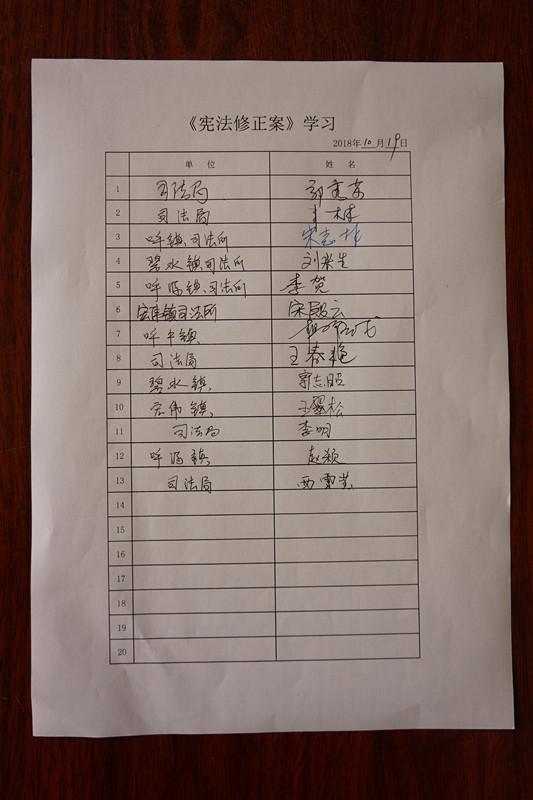 《宪法修正案》学习
2018年10月19日
单位 姓名
1 司法局
2 司法局 林
3 呼镇司法所 宋志
4 碧水镇司法所 刘米生
5 呼源镇司法所 李贺
6 宏伟镇司法所 宋殿云
7 呼中镇
8 司法局 王春艳
9 碧水镇 郭志昭
10 宏伟镇 松
11 司法局 李明
12 呼源镇 赵颖
13 司法局
14
15
16
17
18
19
20